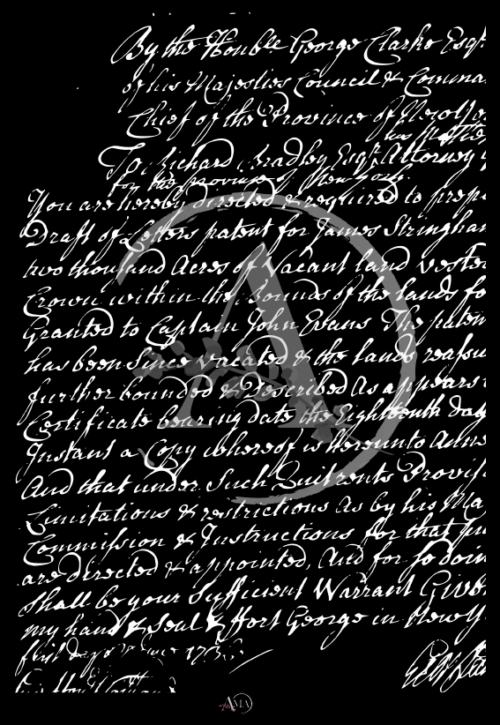 By the Honble George Clarke Esqr.
of his Majesties Council & Comma
Chief of the Province of New Yor
his Matie
To Richard Bradley Esqr. Attorney
for the province of New York.
You are hereby directed & required to prepa
Draft of Letters patent for James Stringham
two thousand Acres of Vacant land vested
Crown within the bounds of the lands fo
Granted to Captain John Evans The paten
has been since vacated & the lands reassu
further bounded & Described As appears
Certificate bearing date the Eighteenth day
Instant a Copy whereof is hereunto Anne
And that under Such Quitrents Provis
Limitations & restrictions as by his Ma
Commission & Instructions for that pu
are directed & appointed, And for so doin
Shall be your sufficient Warrant Given
my hand & Seal att ffort George in New Y
first day of 173
A
AMA